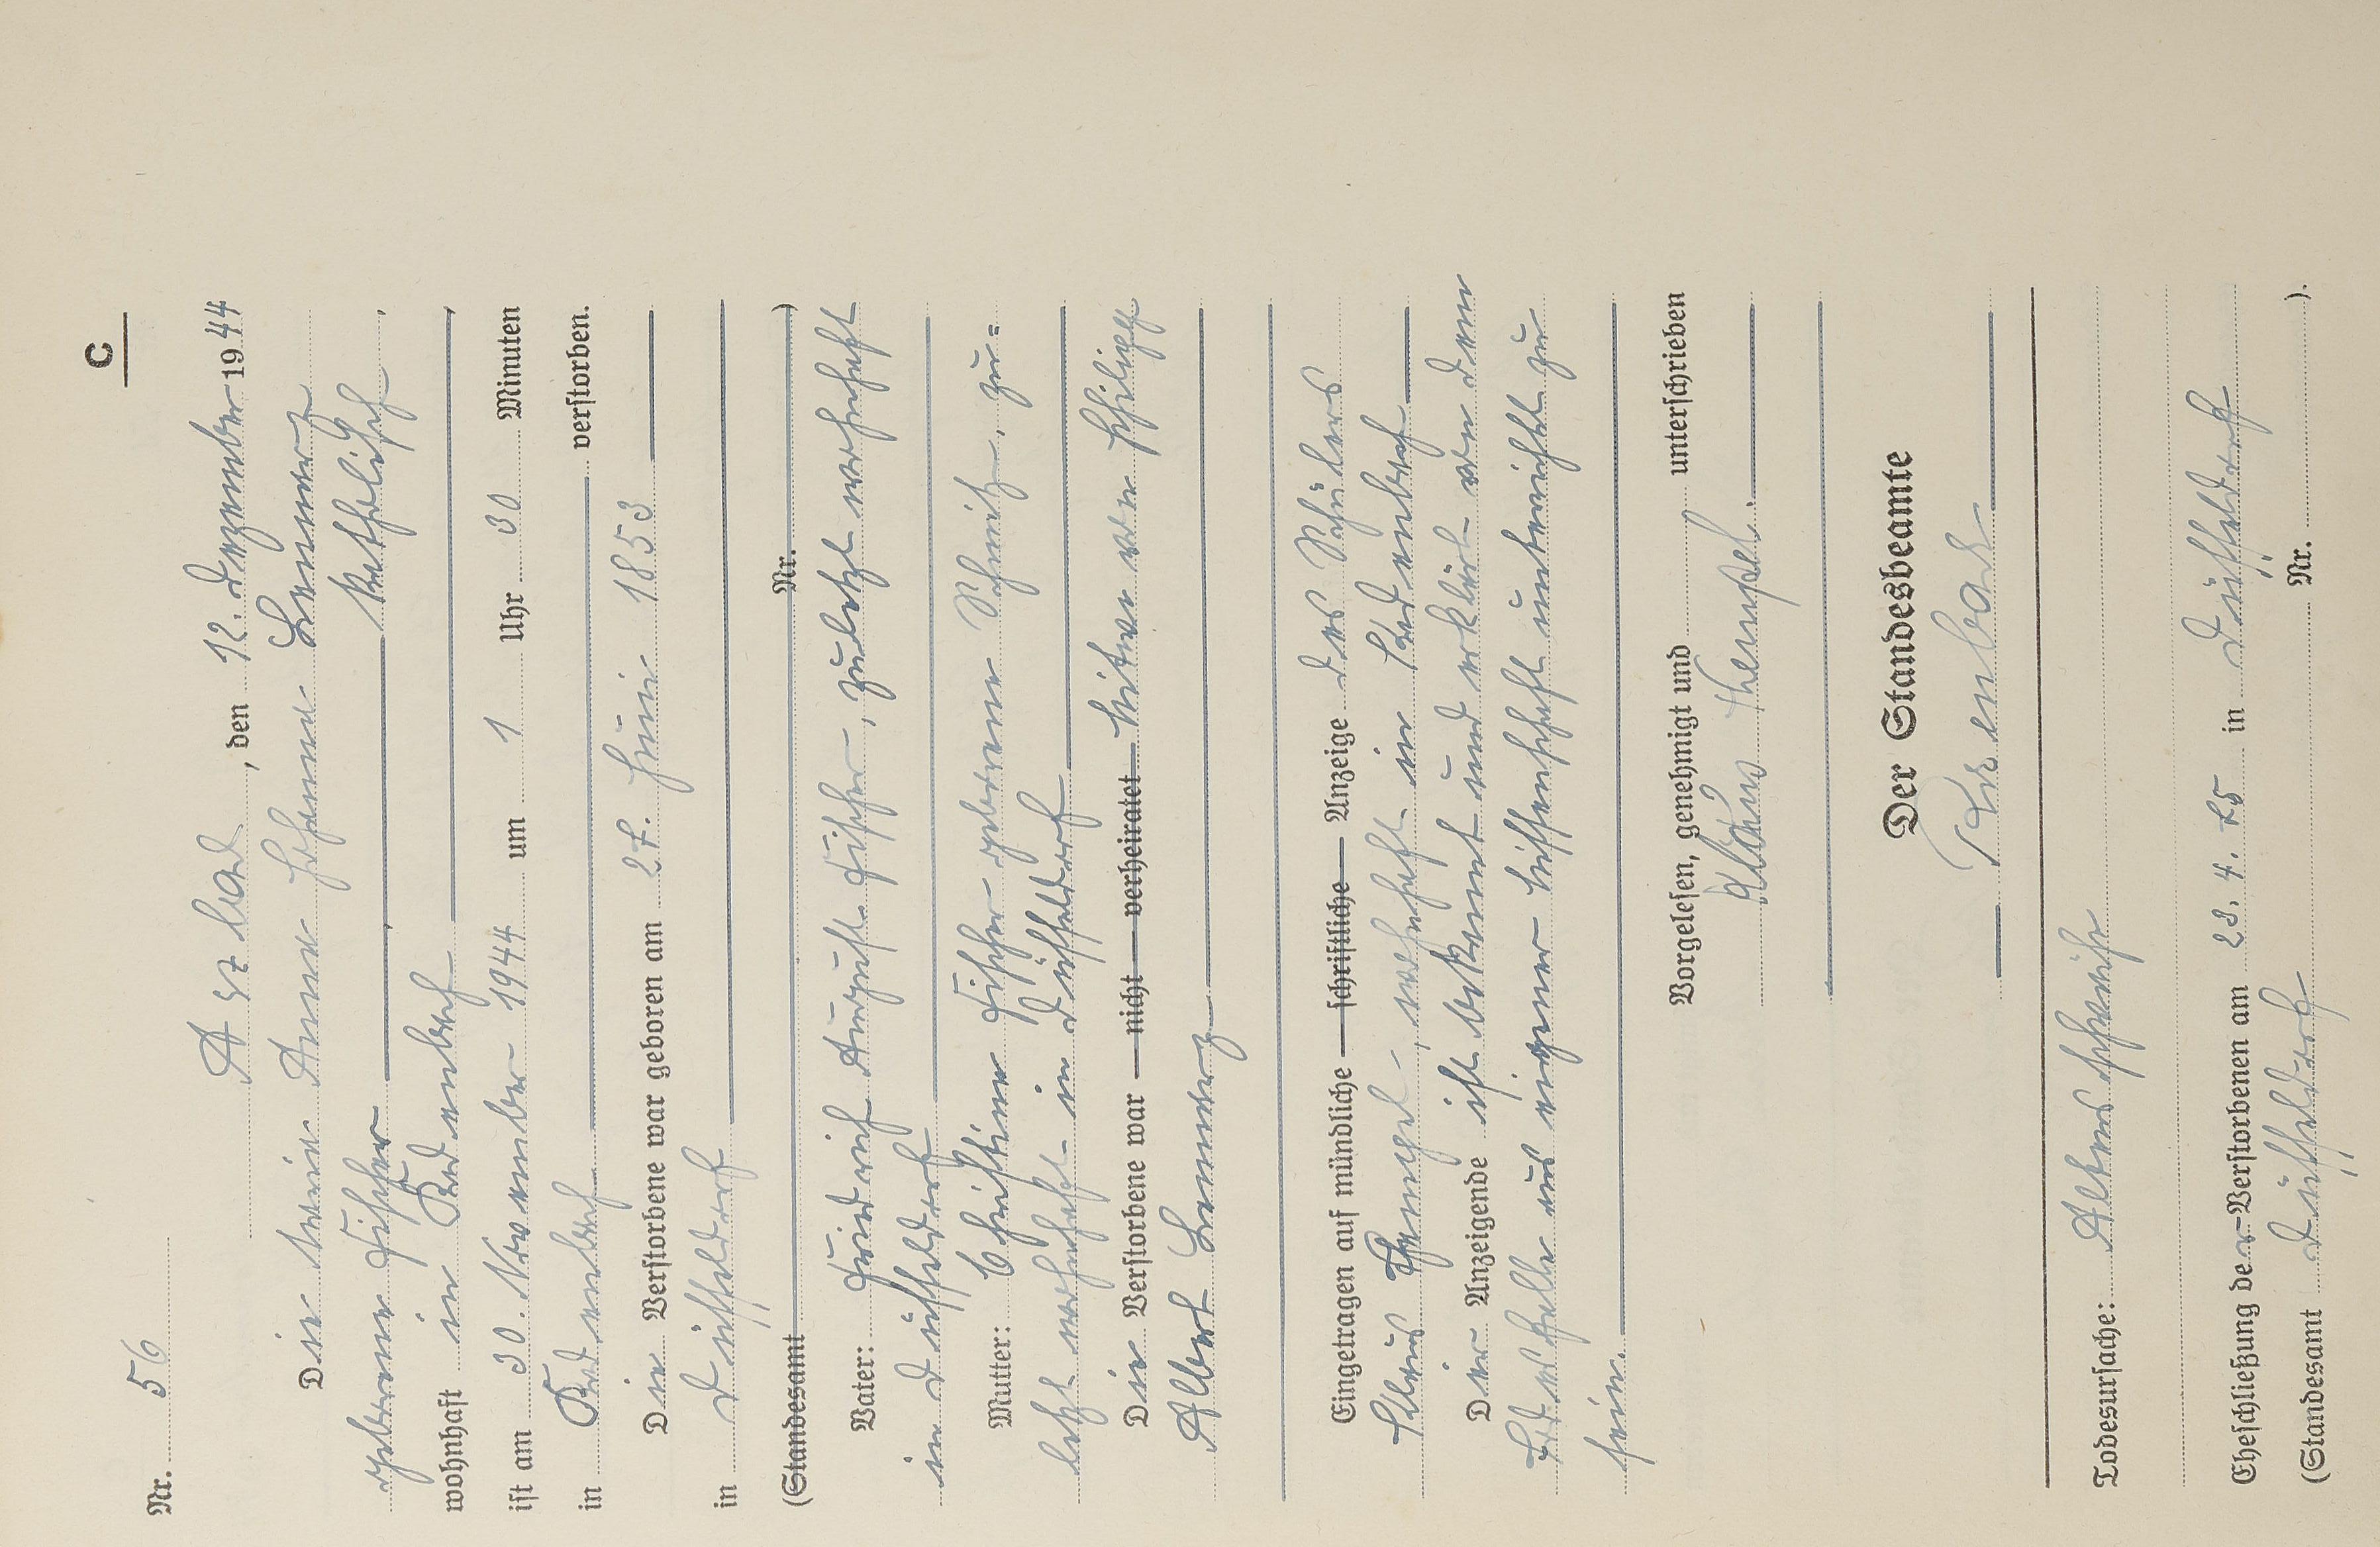 C
Nr. 56
Asbach, den 12. Dezember 1944
Die Witwe Anna Johanna Lennarz
geborene Fischer, katholisch,
wohnhaft in Krautenbach,
ist am 30. November 1944 um 1 Uhr 30 Minuten
in verstorben.
Die Verstorbene war geboren am 27. Juni 1853
in Düsseldorf
(Standesamt Nr. )
Vater: Friedrich August Fischer, zuletzt wohnhaft
in Düsseldorf
Mutter: Christine Fischer geborene Schmitz, zu=
letzt wohnhaft in Düsseldorf
Die Verstorbene war — nicht — verheiratet Witwe von Philipp
Albert Lennarz
Eingetragen auf mündliche — schriftliche — Anzeige des Schülers
Klaus, wohnhaft in
Der Anzeigende ist bekannt und erklärt von dem
Todesfalle aus eigener Wissenschaft unterrichtet zu
sein.
Vorgelesen, genehmigt und unterschrieben
Klaus
Der Standesbeamte
Todesursache: Altersschwäche
Eheschließung der Verstorbenen am 23. 4. 75 in Düsseldorf
(Standesamt Düsseldorf Nr. ).